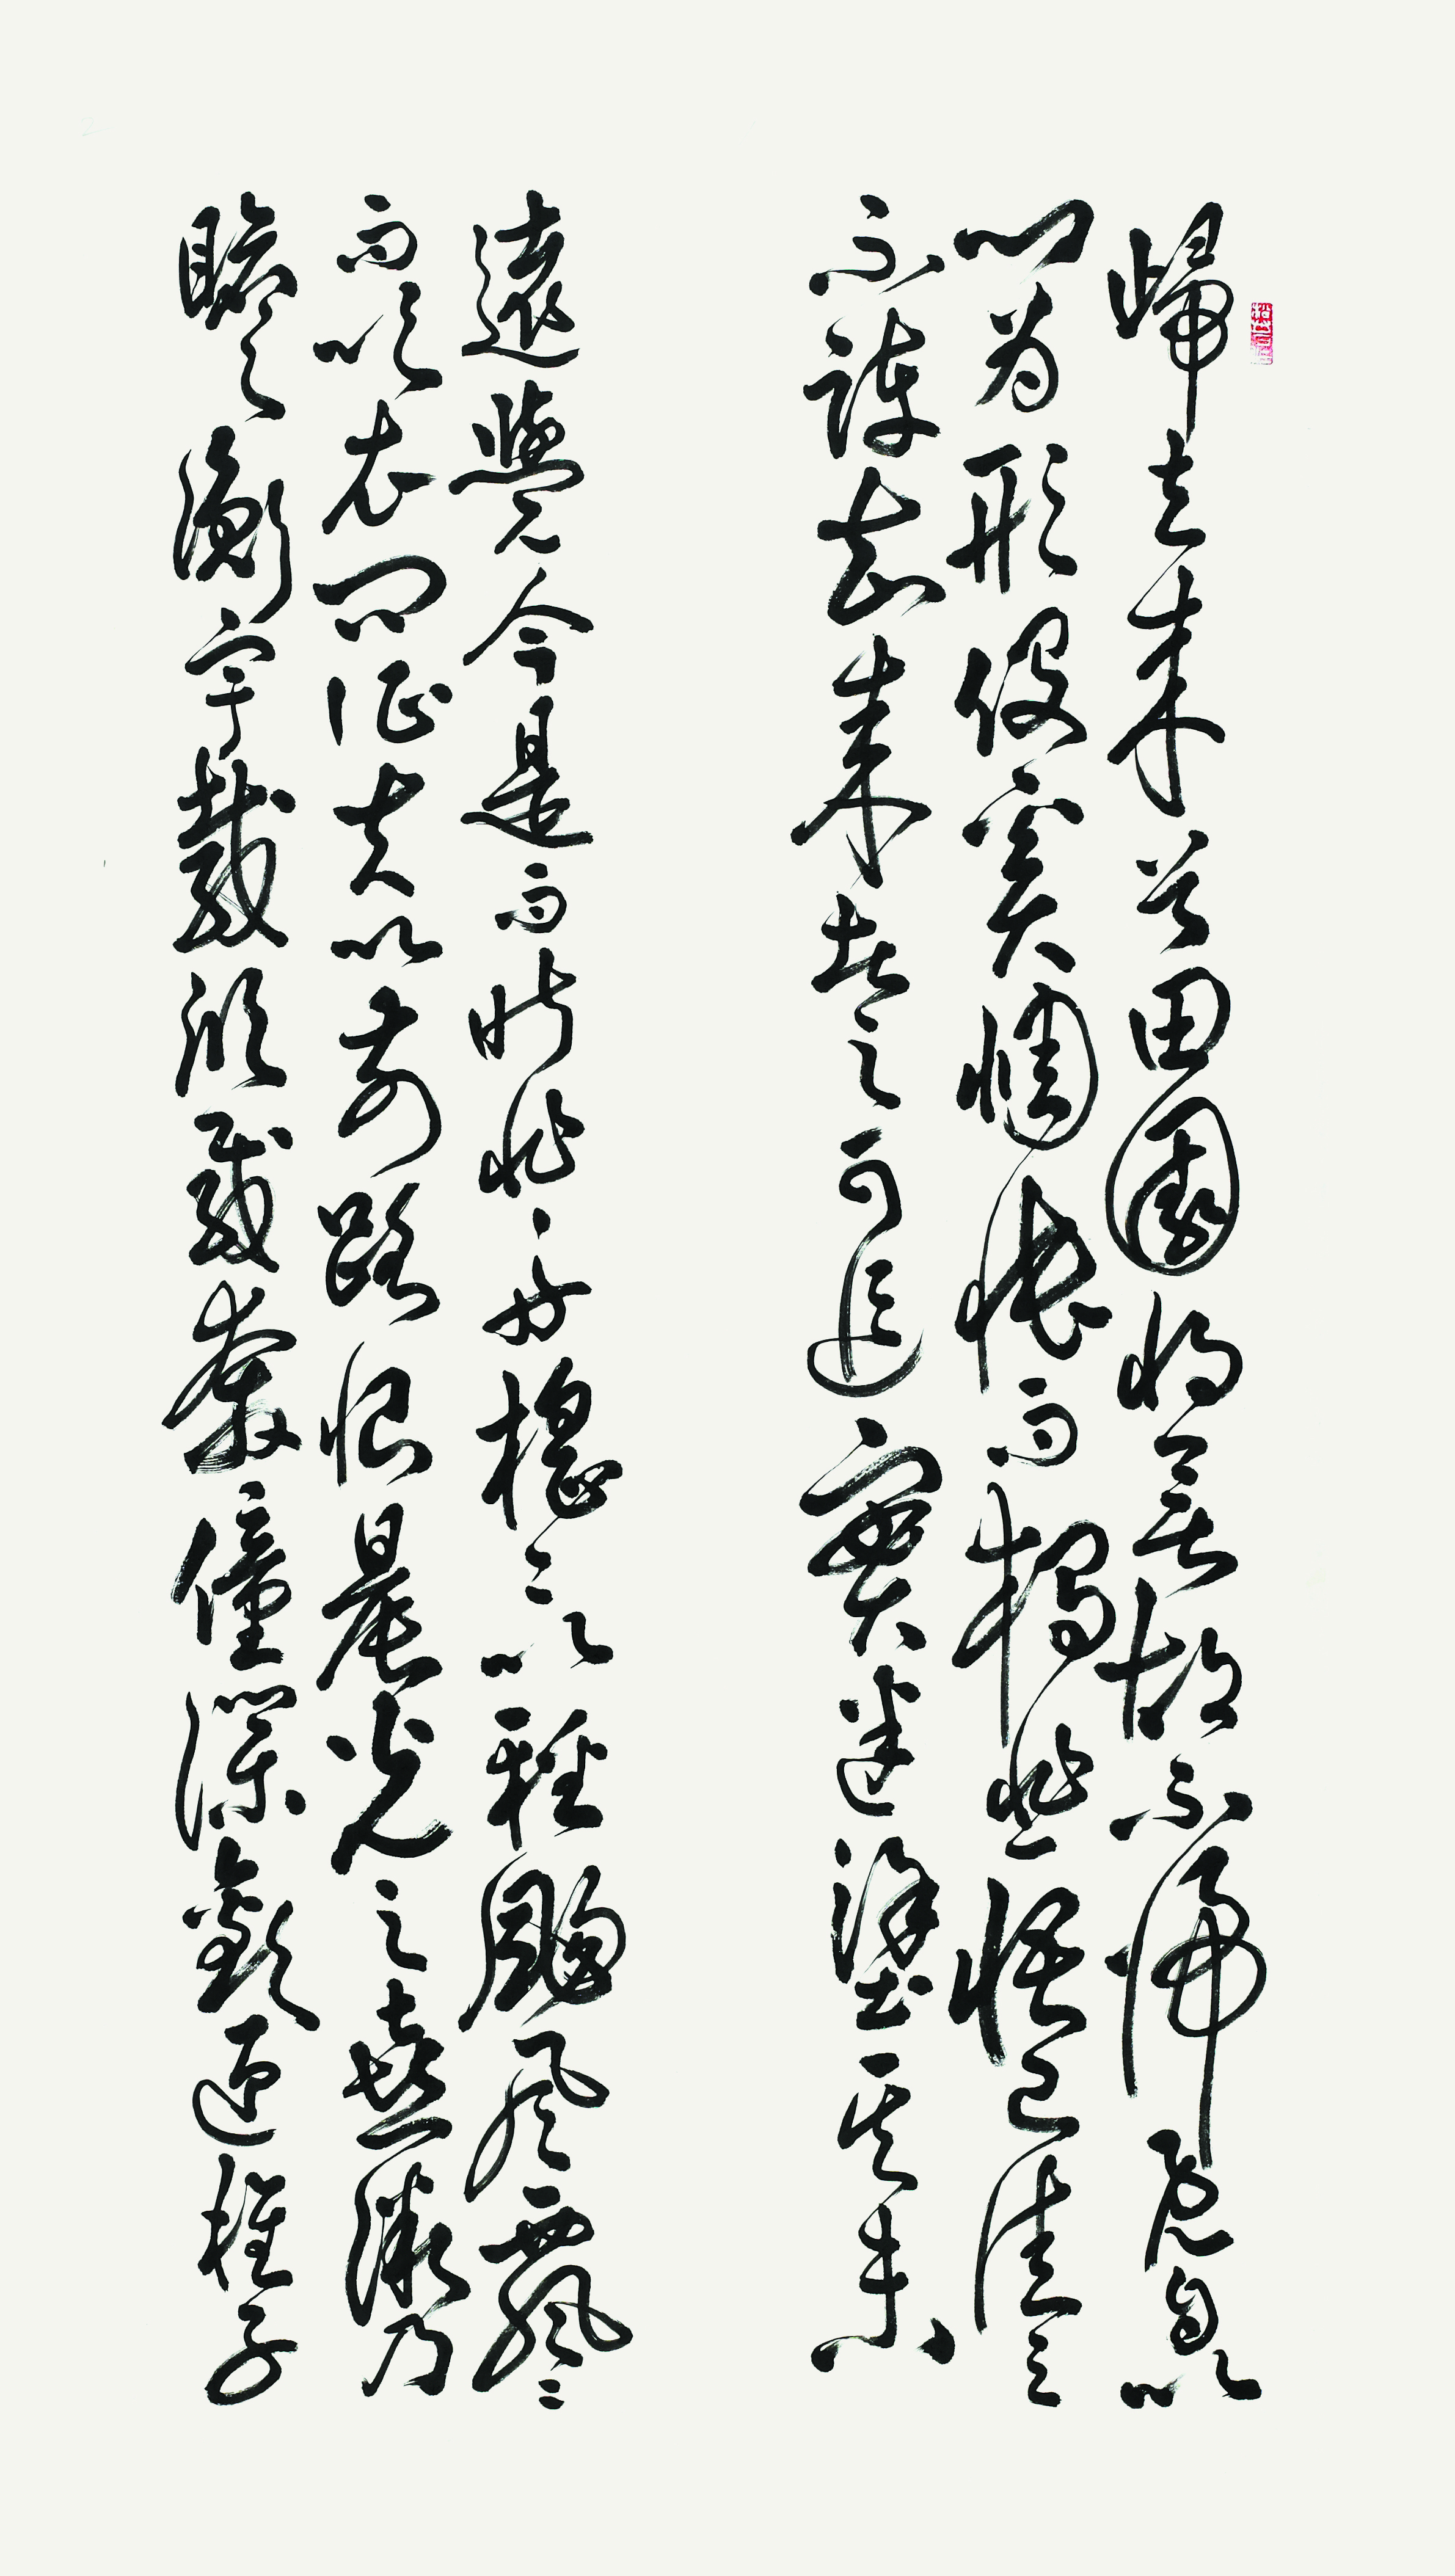 歸去來兮田園將蕪胡不歸既自以
心為形役奚惆悵而獨悲悟已往之
不諫知來者之可追實迷塗其未
遠覺今是而昨非舟搖々以輕颺風飄々
而吹衣問征夫以前路恨晨光之熹微乃
瞻衡宇載欣載奔僮僕歡迎稚子